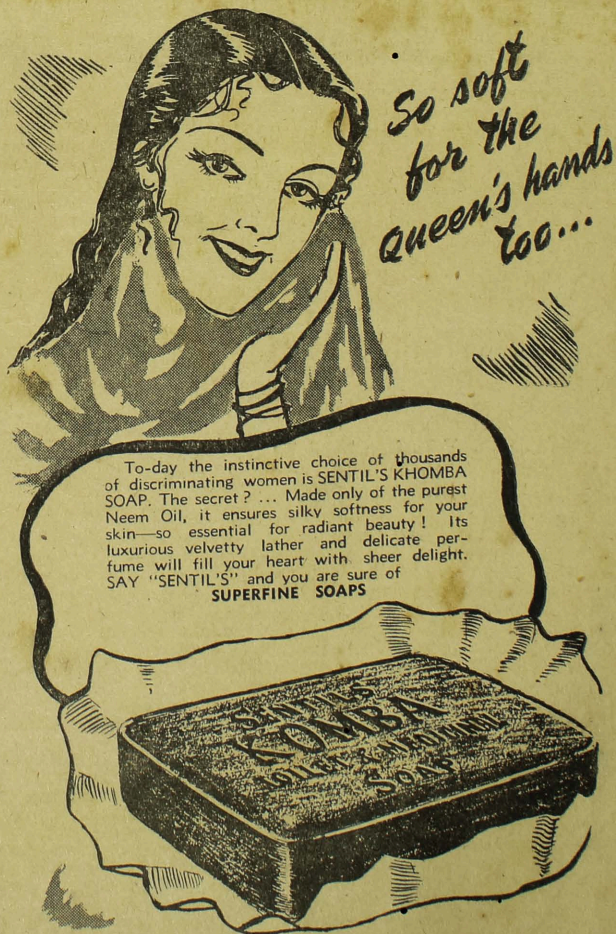 So soft
for the
queen's hands
too...
To-day the instinctive choice of thousands
of discriminating women is SENTIL'S KHOMBA
SOAP. The secret ? ... Made only of the purest
Neem Oil, it ensures silky softness for your
skin—so essential for radiant beauty ! Its
luxurious velvetty lather and delicate per-
fume will fill your heart with sheer delight.
SAY "SENTIL'S" and you are sure of
SUPERFINE SOAPS
SENTIL'S
KOMBA
TOILET & MEDICINAL
SOAP